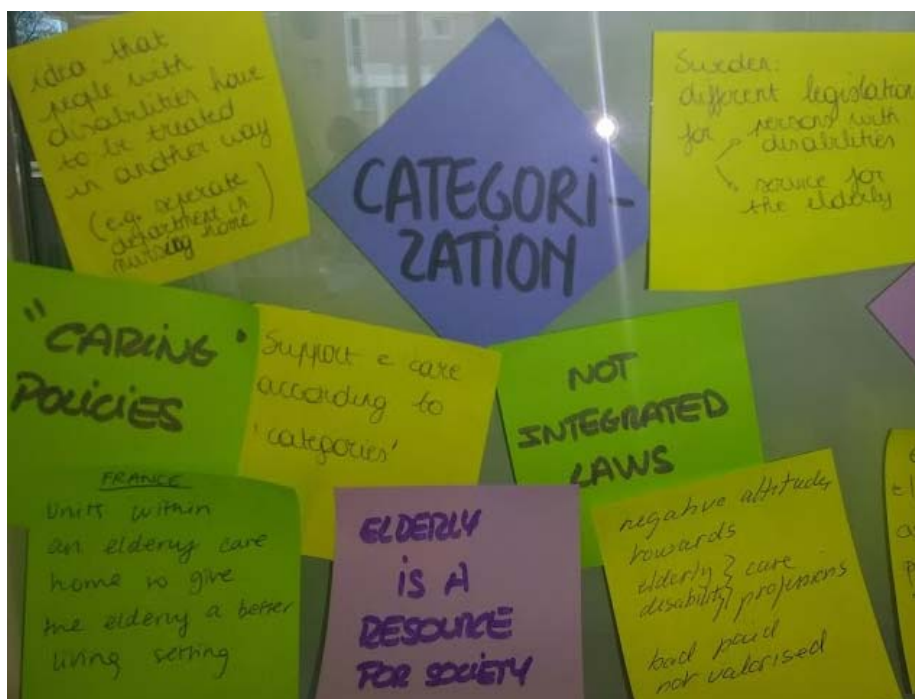 idea that
people with
disabilities have
to be treated
in another way
(e.g. seperate
department in
nursing home)
CATEGORI-
ZATION
Sweden:
different legislation
for persons with
disabilities
service for
the elderly
"CARING"
POLICIES
Support e care
according to
'categories'
NOT
INTEGRATED
LAWS
FRANCE
Units within
an elderly care
home to give
the elderly a better
living setting
ELDERLY
IS A
RESOURCE
FOR SOCIETY
negative attitudes
towards
elderly } care
disability } professions
bad paid
not valorised